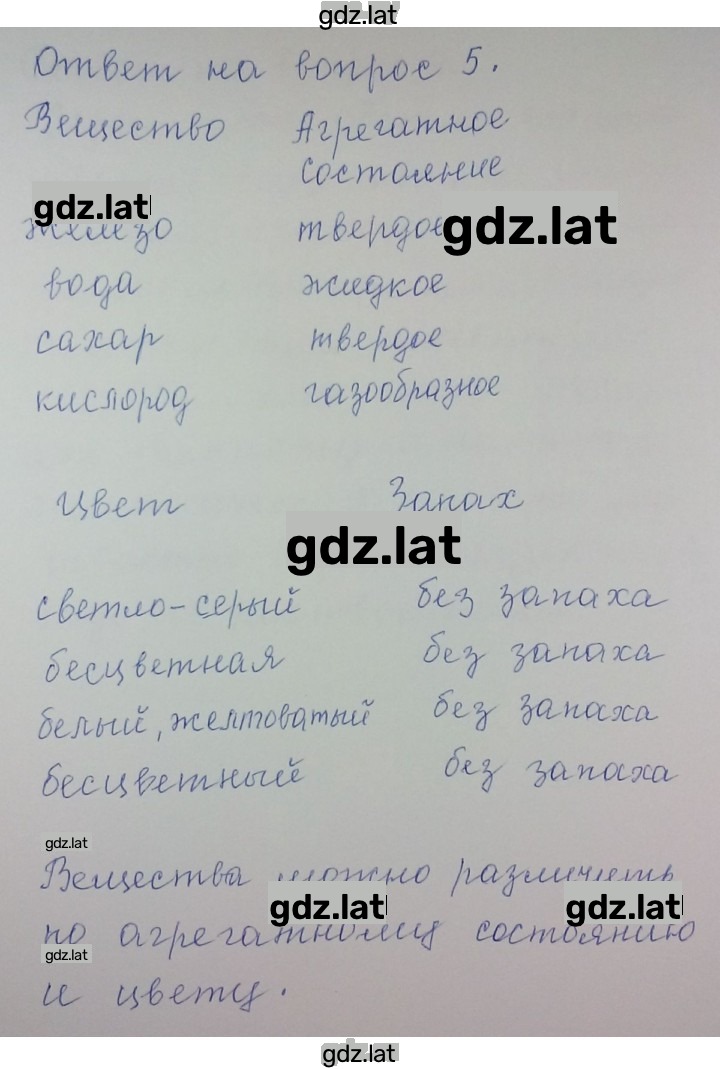 gdz.lat
Ответ на вопрос 5.
Вещество Агрегатное
состояние
gdz.lat
железо твердое gdz.lat
вода жидкое
сахар твердое
кислород газообразное
Цвет Запах
gdz.lat
светло-серый без запаха
бесцветная без запаха
белый, желтоватый без запаха
бесцветный без запаха
gdz.lat
Вещества можно различить
gdz.lat gdz.lat
по агрегатному состоянию
gdz.lat
и цвету.
gdz.lat